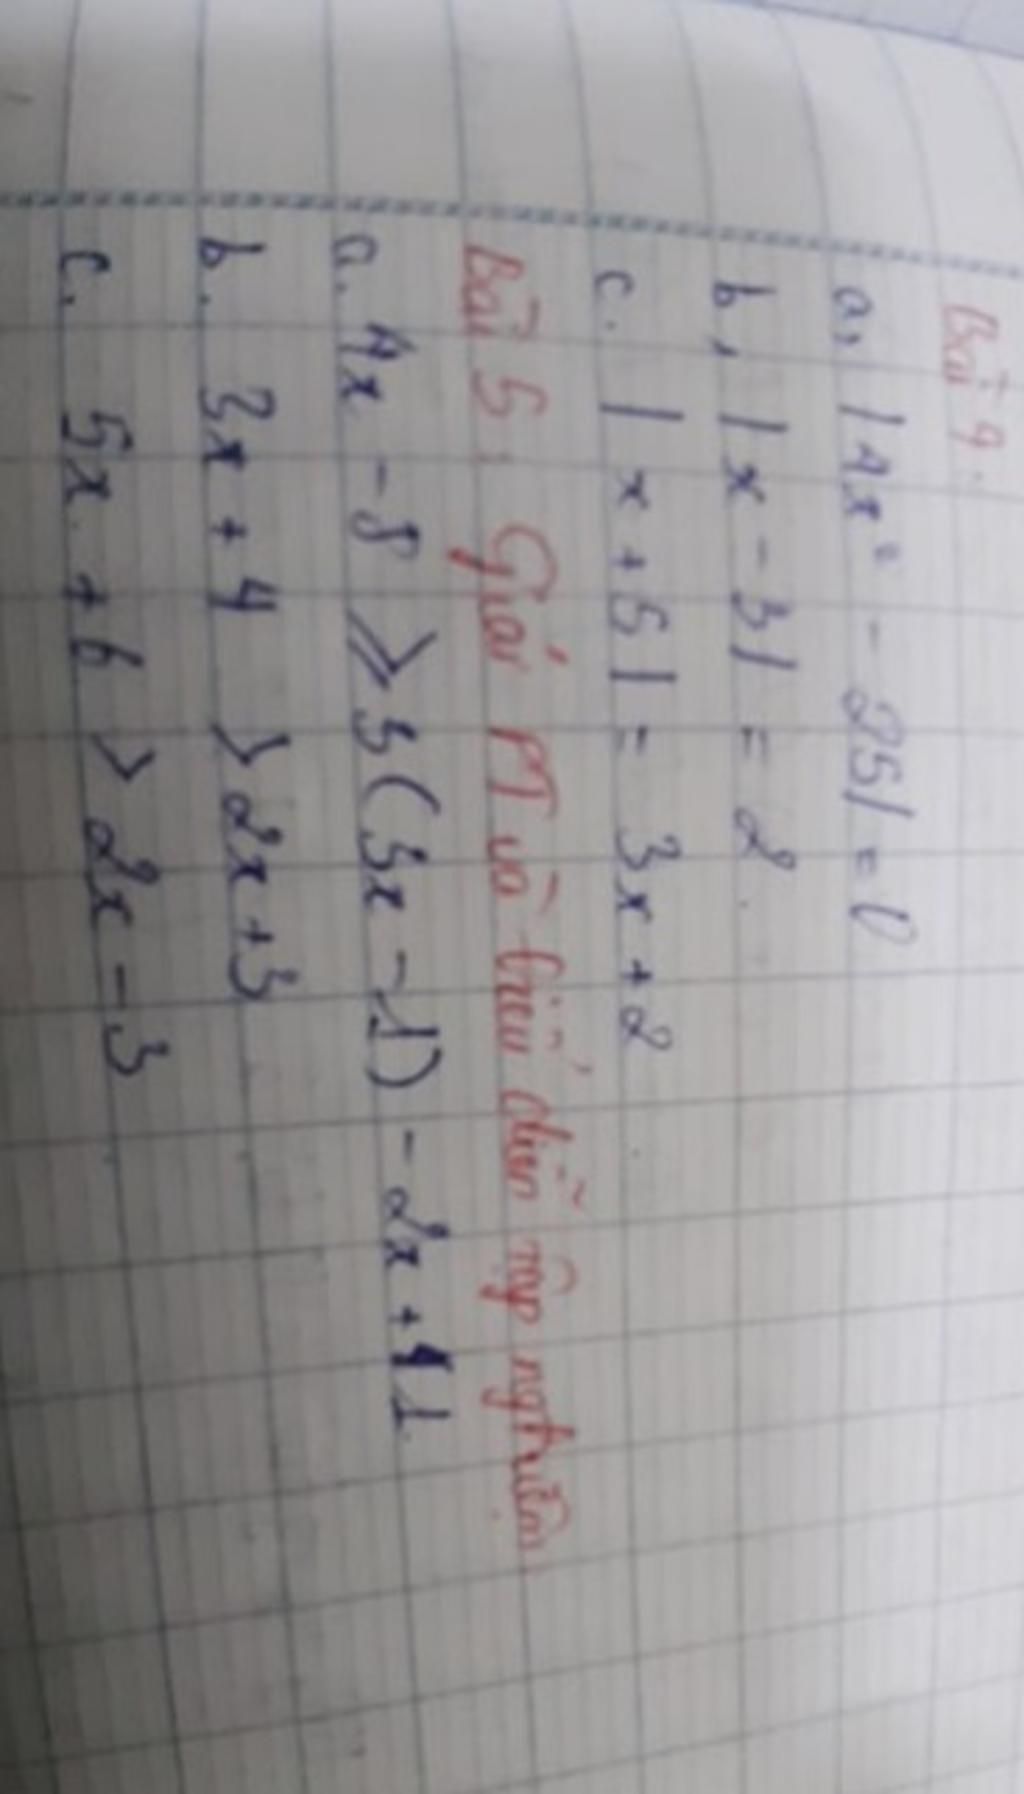 Bài 4.
a, |4x² - 25| = 0
b, |x - 3| = 2.
c. |x + 5| = 3x + 2
Bài 5. Giải PT và biểu diễn tập nghiệm
a. 4x - 8 ≥ 3(3x - 1) - 2x + 41
b. 3x + 4 > 2x + 3
c. 5x + 6 > 2x - 3